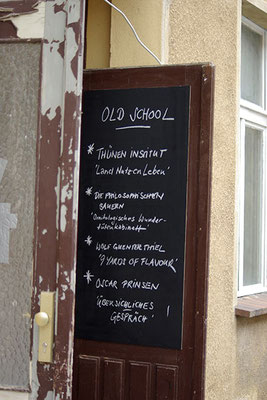 OLD SCHOOL
* THÜNEN INSTITUT
'Land Nutzen Leben'
* DIE PHILOSOPHISCHEN
BAUERN
'Ornitologisches Wunder-
tütenkabinett'
* WOLF GUENTER THIEL
'9 YARDS OF FLAVOUR'
* OSCAR PRINSEN
'ÜBERSICHLICHES
GESPRÄCH'